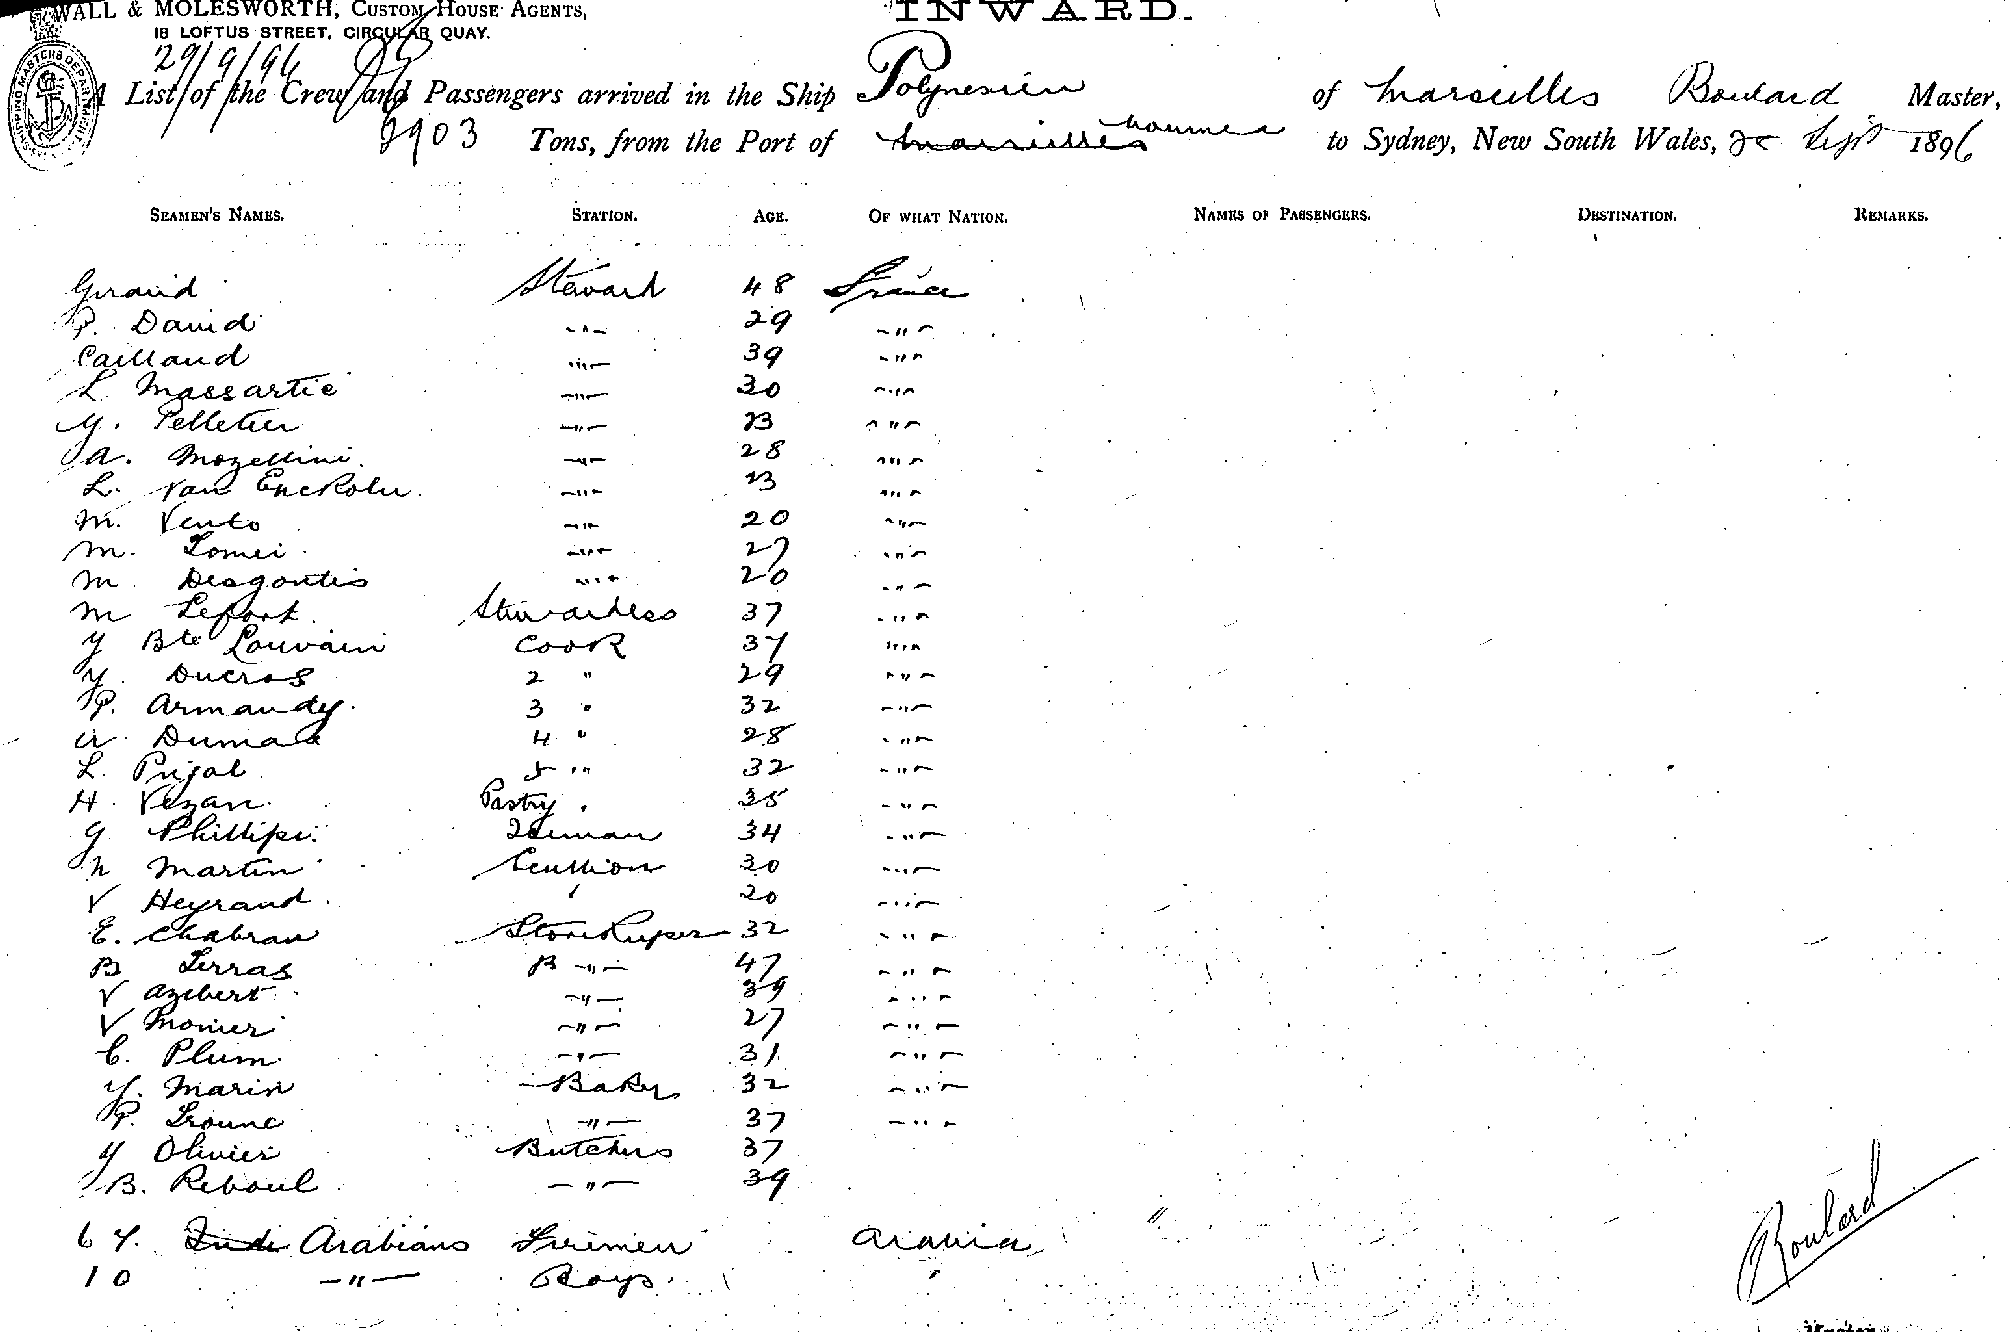 WALL & MOLESWORTH, CUSTOM HOUSE AGENTS,
INWARD.
18 LOFTUS STREET, CIRCULAR QUAY.
29/9/96
SHIPPING MASTERS DEPARTMENT
A List of the Crew and Passengers arrived in the Ship Polynesien of Marseilles Boulard Master,
2903 Tons, from the Port of Marseilles Noumea to Sydney, New South Wales, Sept 1896
SEAMEN'S NAMES. STATION. AGE. OF WHAT NATION. NAMES OF PASSENGERS. DESTINATION. REMARKS.
Giraud Steward 48 France
P. David -"- 29 -"-
Caillaud -"- 39 -"-
L Massartic -"- 30 -"-
Y. Pelletier -"- 23 -"-
A. Mozellini -"- 28 -"-
L. Van -"- 23 -"-
M. Vento -"- 20 -"-
M. Tomei -"- 27 -"-
M Desgoutis -"- 20 -"-
M Lefort Stewardess 37 -"-
Y Bte Louvain Cook 37 -"-
Y. Ducros 2 " 29 -"-
P. Armandy 3 " 32 -"-
A. Dumas 4 " 28 -"-
L. Prijal 5 " 32 -"-
H. Vezan Pastry " 35 -"-
G Phillips 34 -"-
N Martin Scullion 30 -"-
V Heyraud " 20 -"-
E. Chabran Storekeeper 32 -"-
B Terras B -"- 47 -"-
V Azibert -"- 39 -"-
V Monier -"- 27 -"-
C. Plum -"- 31 -"-
Y. Marin Baker 32 -"-
P. -"- 37 -"-
Y Olivier Butchers 37
B. Reboul -"- 39
64. Arabians Firemen Arabia
10 -"- Boys "
Boulard
Master